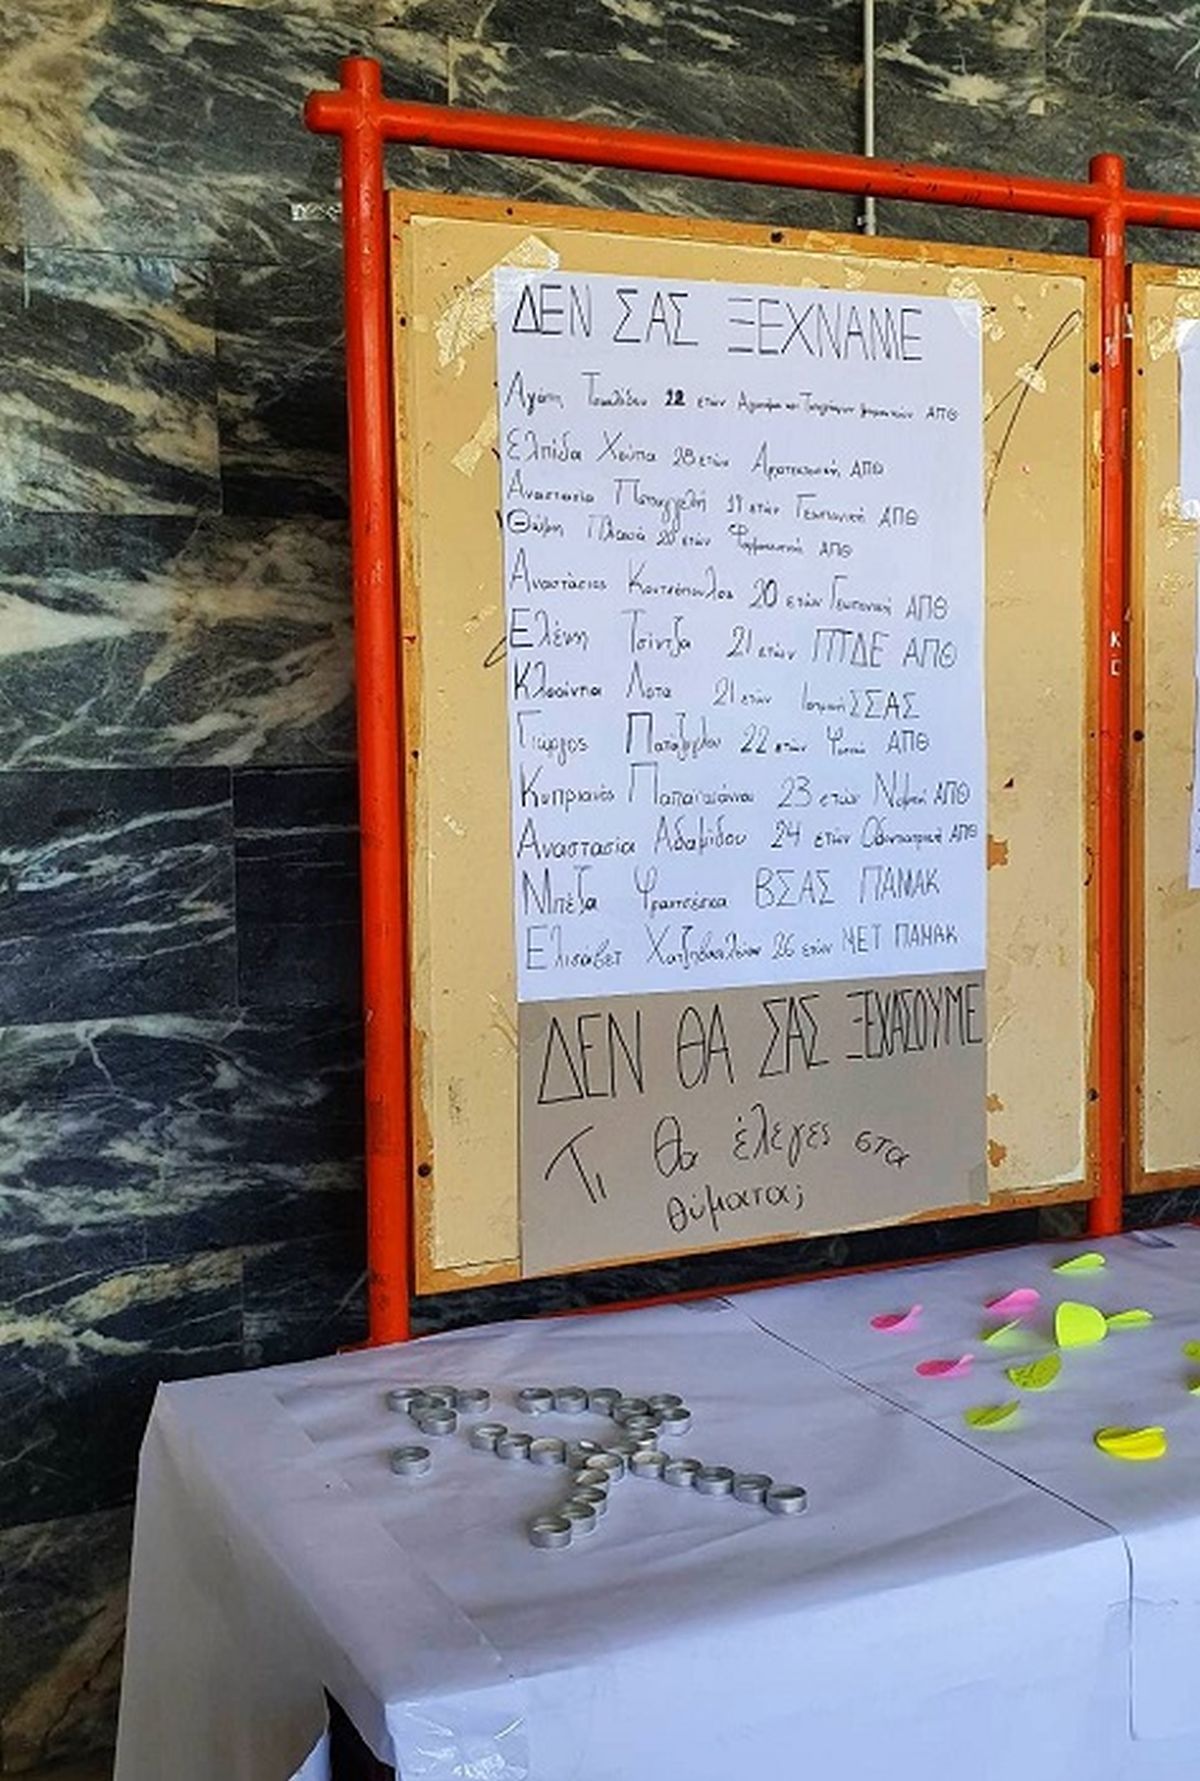 ΔΕΝ ΣΑΣ ΞΕΧΝΑΜΕ
Αγάπη Τσακλίδου 22 ετών Αγρονόμων και Τοπογράφων Μηχανικών ΑΠΘ
Ελπίδα Χούπα 28 ετών Αρχιτεκτονική ΑΠΘ
Αναστασία Παπαγγελή 19 ετών Γεωπονική ΑΠΘ
Θώμη Πλακιά 20 ετών Φαρμακευτική ΑΠΘ
Αναστάσιος Κουτσόπουλος 20 ετών Γεωπονική ΑΠΘ
Ελένη Τσίντζα 21 ετών ΠΤΔΕ ΑΠΘ
Κλαούντια Λατα 21 ετών Ιατρική ΣΣΑΣ
Γιώργος Παπάζογλου 22 ετών ΑΠΘ
Κυπριανός Παπαϊωάννου 23 ετών Νομική ΑΠΘ
Αναστασία Αδαμίδου 24 ετών Οδοντιατρική ΑΠΘ
Μπέζα Φραντσέσκα ΒΣΑΣ ΠΑΜΑΚ
Ελισάβετ Χατζηβασιλείου 26 ετών ΜΕΤ ΠΑΜΑΚ
ΔΕΝ ΘΑ ΣΑΣ ΞΕΧΑΣΟΥΜΕ
Τι θα έλεγες στα
θύματα;